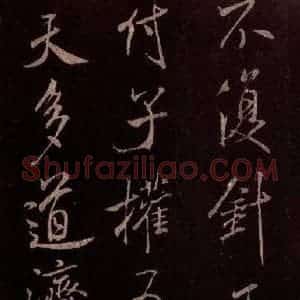 不復針
付子擢
天多道濟
Shufaziliao.COM